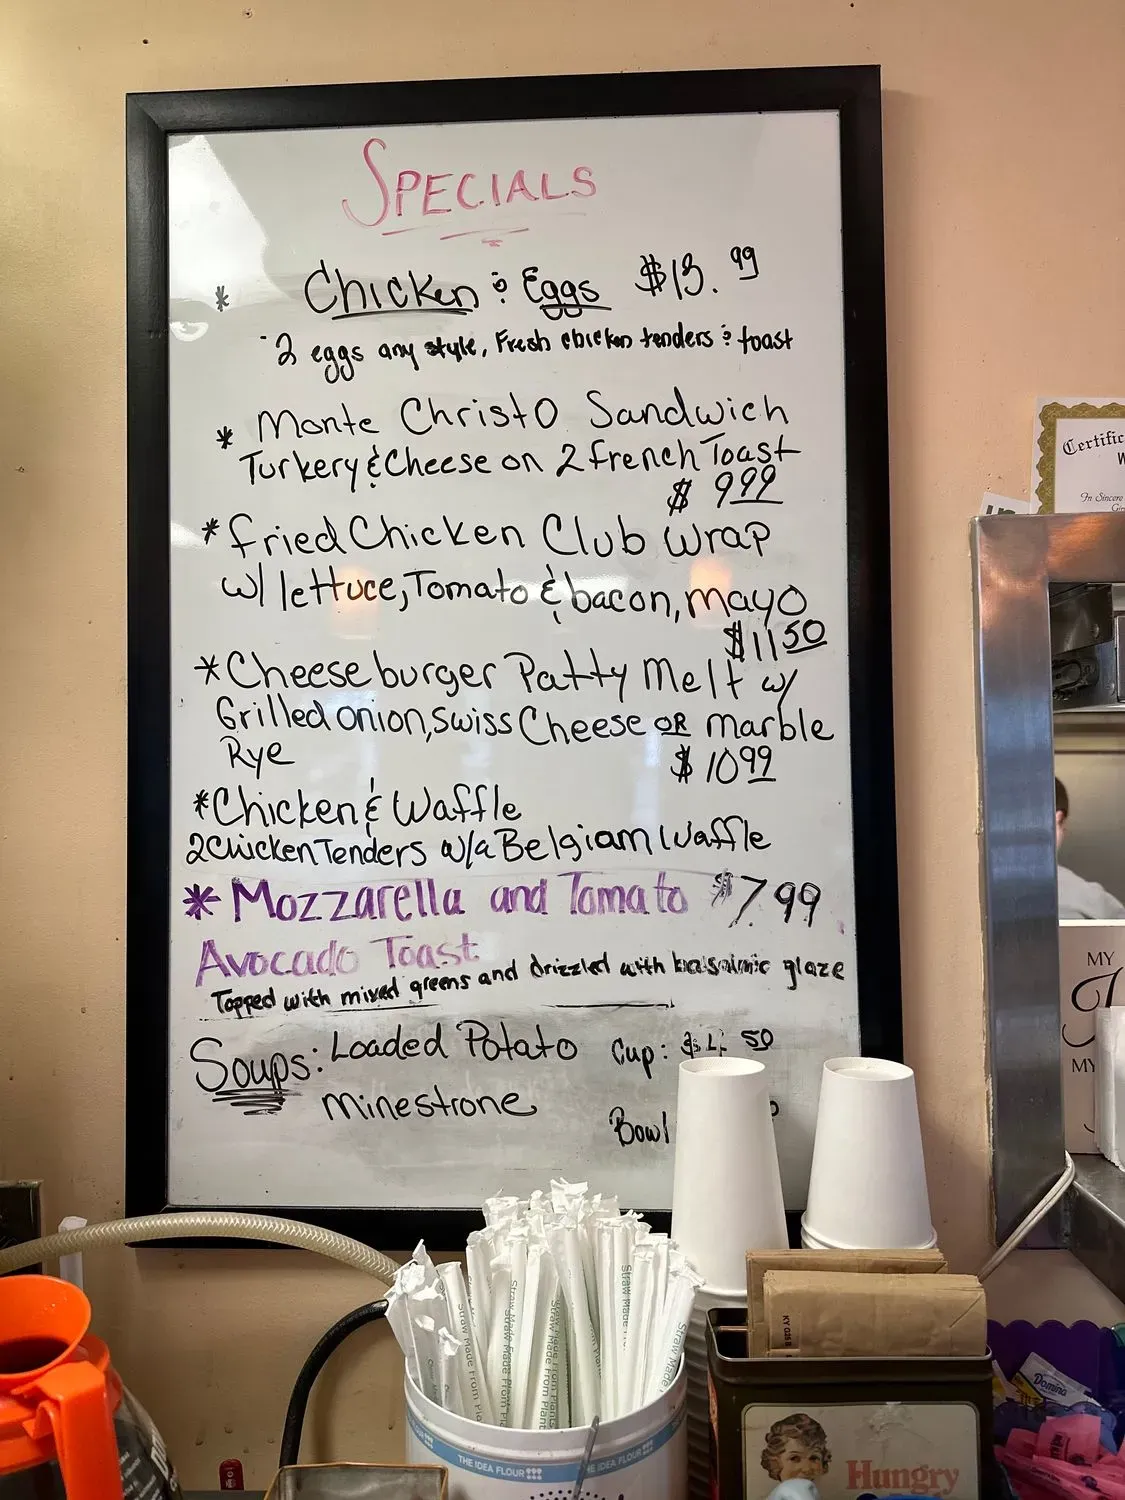 SPECIALS
* Chicken & Eggs $13.99
-2 eggs any style, Fresh chicken tenders & toast
* Monte Christo Sandwich
Turkery & Cheese on 2 french Toast
$ 9.99
* fried Chicken Club Wrap
w/ lettuce, Tomato & bacon, mayo
$11.50
* Cheese burger Patty Melt w/
Grilled onion, swiss Cheese OR marble
Rye
$ 10.99
* Chicken & Waffle
2 Chicken Tenders w/a Belgiam Waffle
* Mozzarella and Tomato $7.99
Avocado Toast
Topped with mixed greens and drizzled with balsalmic glaze
Soups: Loaded Potato Cup: $4.50
Minestrone
Bowl
Certific
W
In Sincere
MY
MY
Straw Made From Plants
Straw Made From
THE IDEA FLOUR
HE IDEA FLOUR
Domino
Hungry